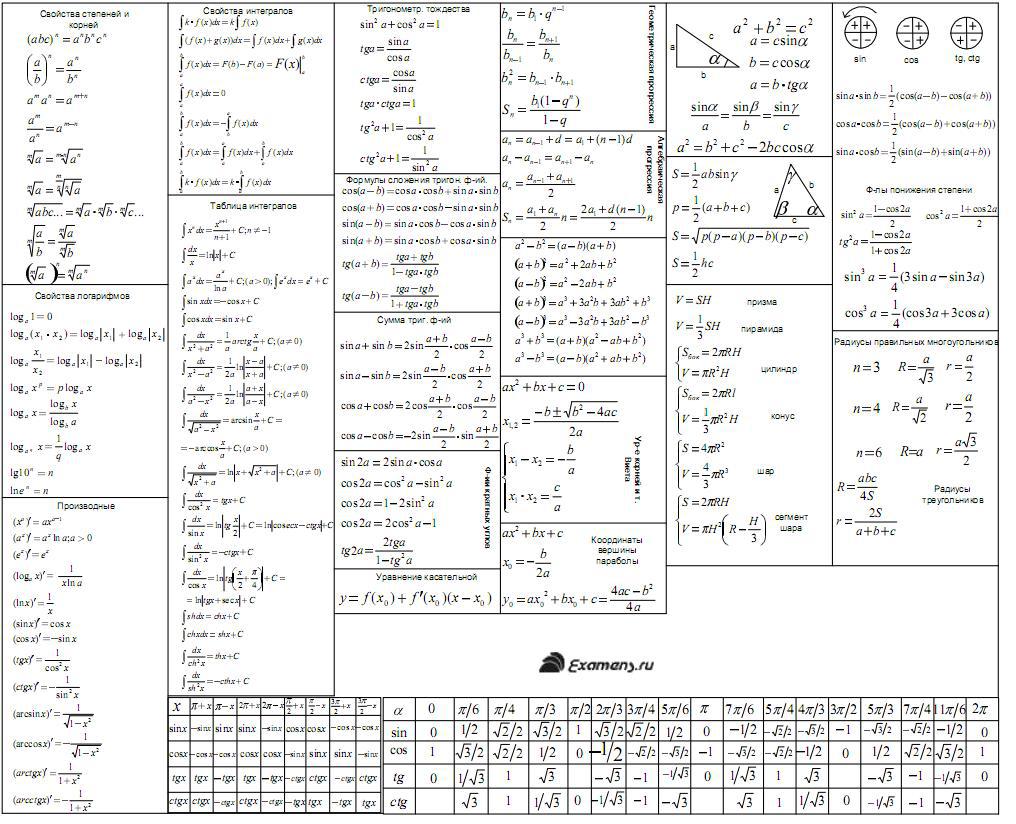 Свойства степеней и
корней
(abc)ⁿ = aⁿbⁿcⁿ
(a/b)ⁿ = aⁿ/bⁿ
aᵐaⁿ = aᵐ⁺ⁿ
aᵐ/aⁿ = aᵐ⁻ⁿ
Свойства логарифмов
logₐ1 = 0
logₐ(x₁·x₂) = logₐ|x₁| + logₐ|x₂|
logₐ x₁/x₂ = logₐ|x₁| − logₐ|x₂|
logₐ xᵖ = p logₐ x
logₐ x = log_b x / log_b a
lg10ⁿ = n
lneⁿ = n
Производные
(aˣ)′ = aˣ ln a; a > 0
(eˣ)′ = eˣ
(logₐ x)′ = 1/(x ln a)
(ln x)′ = 1/x
(sin x)′ = cos x
(cos x)′ = −sin x
(tgx)′ = 1/cos²x
(ctgx)′ = −1/sin²x
(arcsinx)′ = 1/√(1−x²)
(arccosx)′ = −1/√(1−x²)
(arctgx)′ = 1/(1+x²)
(arcctgx)′ = −1/(1+x²)
Свойства интегралов
∫k·f(x)dx = k∫f(x)
∫(f(x)+g(x))dx = ∫f(x)dx + ∫g(x)dx
∫ₐᵇ f(x)dx = F(b) − F(a) = F(x)|ₐᵇ
Таблица интегралов
∫xⁿdx = xⁿ⁺¹/(n+1) + C; n ≠ −1
∫dx/x = ln|x| + C
∫aˣdx = aˣ/ln a + C; (a>0); ∫eˣdx = eˣ + C
∫sin xdx = −cos x + C
∫cos xdx = sin x + C
∫dx/(x²+a²) = 1/a arctg x/a + C; (a≠0)
∫dx/(x²−a²) = 1/2a ln|(x−a)/(x+a)| + C; (a≠0)
∫dx/(a²−x²) = 1/2a ln|(a+x)/(a−x)| + C; (a≠0)
∫dx/√(a²−x²) = arcsin x/a + C =
= −arccos x/a + C; (a>0)
∫dx/√(x²+a) = ln|x+√(x²+a)| + C; (a≠0)
∫dx/cos²x = tgx + C
∫dx/sin x = ln|tg x/2| + C = ln|cosecx−ctgx| + C
∫dx/sin²x = −ctgx + C
∫dx/cos x = ln|tg(x/2+π/4)| + C =
= ln|tgx + secx| + C
∫shdx = chx + C
∫chxdx = shx + C
∫dx/ch²x = thx + C
∫dx/sh²x = −cthx + C
Тригонометр. тождества
sin²a + cos²a = 1
tga = sina/cosa
ctga = cosa/sina
tga·ctga = 1
tg²a + 1 = 1/cos²a
ctg²a + 1 = 1/sin²a
Формулы сложения тригон. ф-ий.
cos(a−b) = cosa·cosb + sina·sinb
cos(a+b) = cosa·cosb − sina·sinb
sin(a−b) = sina·cosb − cosa·sinb
sin(a+b) = sina·cosb + cosa·sinb
tg(a+b) = (tga+tgb)/(1−tga·tgb)
tg(a−b) = (tga−tgb)/(1+tga·tgb)
Сумма триг. ф-ий
sina + sinb = 2sin (a+b)/2 · cos (a−b)/2
sina − sinb = 2sin (a−b)/2 · cos (a+b)/2
cosa + cosb = 2cos (a+b)/2 · cos (a−b)/2
cosa − cosb = −2sin (a−b)/2 · sin (a+b)/2
Ф-ии кратных углов
sin2a = 2sina·cosa
cos2a = cos²a − sin²a
cos2a = 1 − 2sin²a
cos2a = 2cos²a − 1
tg2a = 2tga/(1−tg²a)
Уравнение касательной
y = f(x₀) + f′(x₀)(x − x₀)
Геометрическая прогрессия
bₙ = b₁·qⁿ⁻¹
bₙ/bₙ₋₁ = bₙ₊₁/bₙ
bₙ² = bₙ₋₁·bₙ₊₁
Sₙ = b₁(1−qⁿ)/(1−q)
Алгебраическая
прогрессия
aₙ = aₙ₋₁ + d = a₁ + (n−1)d
aₙ − aₙ₋₁ = aₙ₊₁ − aₙ
aₙ = (aₙ₋₁+aₙ₊₁)/2
Sₙ = (a₁+aₙ)/2 n = (2a₁+d(n−1))/2 n
a² − b² = (a−b)(a+b)
(a+b)² = a² + 2ab + b²
(a−b)² = a² − 2ab + b²
(a+b)³ = a³ + 3a²b + 3ab² + b³
(a−b)³ = a³ − 3a²b + 3ab² − b³
a³ + b³ = (a+b)(a² − ab + b²)
a³ − b³ = (a−b)(a² + ab + b²)
Ур-е корней и т.
Виета
ax² + bx + c = 0
x₁,₂ = (−b ± √(b²−4ac))/2a
x₁ − x₂ = −b/a
x₁·x₂ = c/a
ax² + bx + c
Координаты
вершины
параболы
x₀ = −b/2a
y₀ = ax₀² + bx₀ + c = (4ac−b²)/4a
a c b α
a² + b² = c²
a = c sinα
b = c cosα
a = b·tgα
sinα/a = sinβ/b = sinγ/c
a² = b² + c² − 2bc cosα
S = 1/2 ab sinγ
p = 1/2 (a+b+c)
S = √(p(p−a)(p−b)(p−c))
S = 1/2 hc
γ a b β α c
V = SH призма
V = 1/3 SH пирамида
Sбок = 2πRH
V = πR²H
цилиндр
Sбок = 2πRl
V = 1/3 πR²H
конус
S = 4πR²
V = 4/3 πR³
шар
S = 2πRH
V = πH²(R − H/3)
сегмент
шара
sin cos tg, ctg
sina·sinb = 1/2 (cos(a−b) − cos(a+b))
cosa·cosb = 1/2 (cos(a−b) + cos(a+b))
sina·cosb = 1/2 (sin(a−b) + sin(a+b))
Ф-лы понижения степени
sin²a = (1−cos2a)/2 cos²a = (1+cos2a)/2
tg²a = (1−cos2a)/(1+cos2a)
sin³a = 1/4 (3sina − sin3a)
cos³a = 1/4 (cos3a + 3cosa)
Радиусы правильных многоугольников
n = 3 R = a/√3 r = a/2
n = 4 R = a/√2 r = a/2
n = 6 R = a r = a√3/2
R = abc/4S
r = 2S/(a+b+c)
Радиусы
треугольников
Examens.ru
x π+x π−x 2π+x 2π−x π/2+x π/2−x 3π/2+x 3π/2−x
sinx −sinx sinx sinx −sinx cosx cosx −cosx −cosx
cosx −cosx −cosx cosx cosx −sinx sinx sinx −sinx
tgx tgx −tgx tgx −tgx −ctgx ctgx −ctgx ctgx
ctgx ctgx −ctgx ctgx −ctgx −tgx tgx −tgx tgx
α 0 π/6 π/4 π/3 π/2 2π/3 3π/4 5π/6 π 7π/6 5π/4 4π/3 3π/2 5π/3 7π/4 11π/6 2π
sin 0 1/2 √2/2 √3/2 1 √3/2 √2/2 1/2 0 −1/2 −√2/2 −√3/2 −1 −√3/2 −√2/2 −1/2 0
cos 1 √3/2 √2/2 1/2 0 −1/2 −√2/2 −√3/2 −1 −√3/2 −√2/2 −1/2 0 1/2 √2/2 √3/2 1
tg 0 1/√3 1 √3 −√3 −1 −1/√3 0 1/√3 1 √3 −√3 −1 −1/√3 0
ctg √3 1 1/√3 0 −1/√3 −1 −√3 √3 1 1/√3 0 −1/√3 −1 −√3